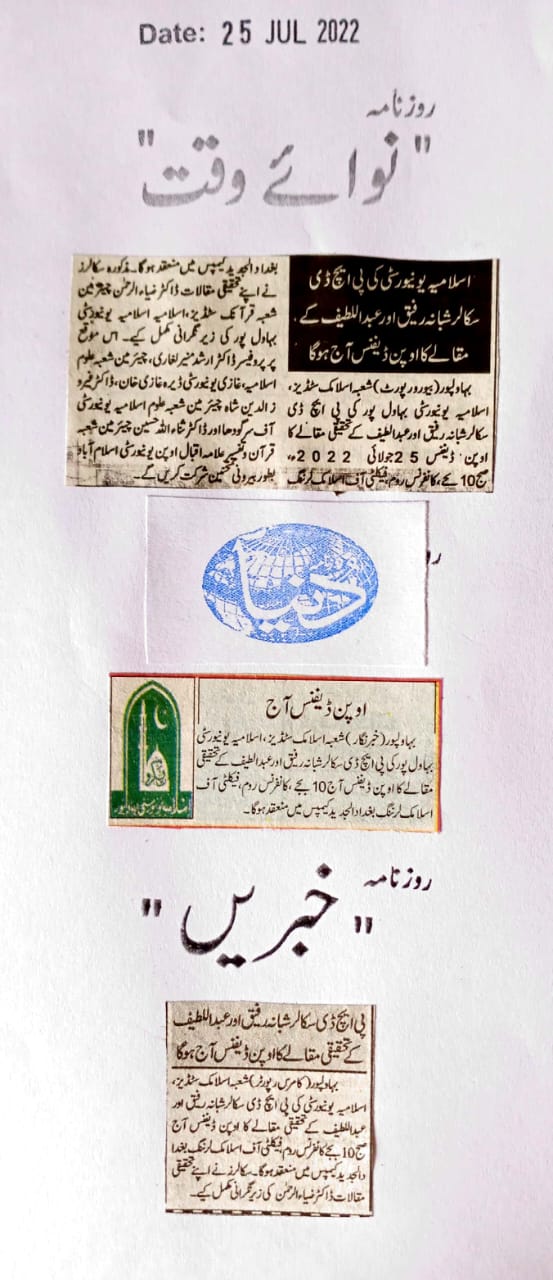 Date: 25 JUL 2022
روزنامہ
"نوائے وقت"
اسلامیہ یونیورسٹی کی پی ایچ ڈی
سکالر شبانہ رفیق اور عبداللطیف کے
مقالے کا اوپن ڈیفنس آج ہوگا
بہاولپور (بیورورپورٹ) شعبہ اسلامک سٹڈیز،
اسلامیہ یونیورسٹی بہاول پور کی پی ایچ ڈی
سکالر شبانہ رفیق اور عبداللطیف کے تحقیقی مقالے کا
اوپن ڈیفنس 25 جولائی 2022ء،
صبح 10 بجے، کانفرنس روم، فیکلٹی آف اسلامک لرننگ
بغداد الجدید کیمپس میں منعقد ہوگا۔ مذکورہ سکالرز
نے اپنے تحقیقی مقالات ڈاکٹر ضیاء الرحمٰن چیئرمین
شعبہ قرآنک سٹڈیز، اسلامیہ یونیورسٹی
بہاول پور کی زیر نگرانی مکمل کیے۔ اس موقع
پر پروفیسر ڈاکٹر ارشد منیر لغاری، چیئرمین شعبہ علوم
اسلامیہ، غازی یونیورسٹی ڈیرہ غازی خان، ڈاکٹر فیرو
ز الدین شاہ چیئرمین شعبہ علوم اسلامیہ یونیورسٹی
آف سرگودھا اور ڈاکٹر ثناء اللہ حسین چیئرمین شعبہ
قرآن و تفسیر علامہ اقبال اوپن یونیورسٹی اسلام آباد
بطور بیرونی ممتحین شرکت کریں گے۔
دنیا
اوپن ڈیفنس آج
بہاولپور (خبرنگار) شعبہ اسلامک سٹڈیز، اسلامیہ یونیورسٹی
بہاول پور کی پی ایچ ڈی سکالر شبانہ رفیق اور عبداللطیف کے تحقیقی
مقالے کا اوپن ڈیفنس آج 10 بجے، کانفرنس روم، فیکلٹی آف
اسلامک لرننگ بغداد الجدید کیمپس میں منعقد ہوگا۔
روزنامہ
"خبریں"
پی ایچ ڈی سکالر شبانہ رفیق اور عبداللطیف
کے تحقیقی مقالے کا اوپن ڈیفنس آج ہوگا
بہاولپور (کامرس رپورٹر) شعبہ اسلامک سٹڈیز،
اسلامیہ یونیورسٹی کی پی ایچ ڈی سکالر شبانہ رفیق اور
عبداللطیف کے تحقیقی مقالے کا اوپن ڈیفنس آج
صبح 10 بجے کانفرنس روم، فیکلٹی آف اسلامک لرننگ بغدا
دالجدید کیمپس میں منعقد ہوگا۔ سکالرز نے اپنے تحقیقی
مقالات ڈاکٹر ضیاء الرحمٰن کی زیر نگرانی مکمل کیے۔